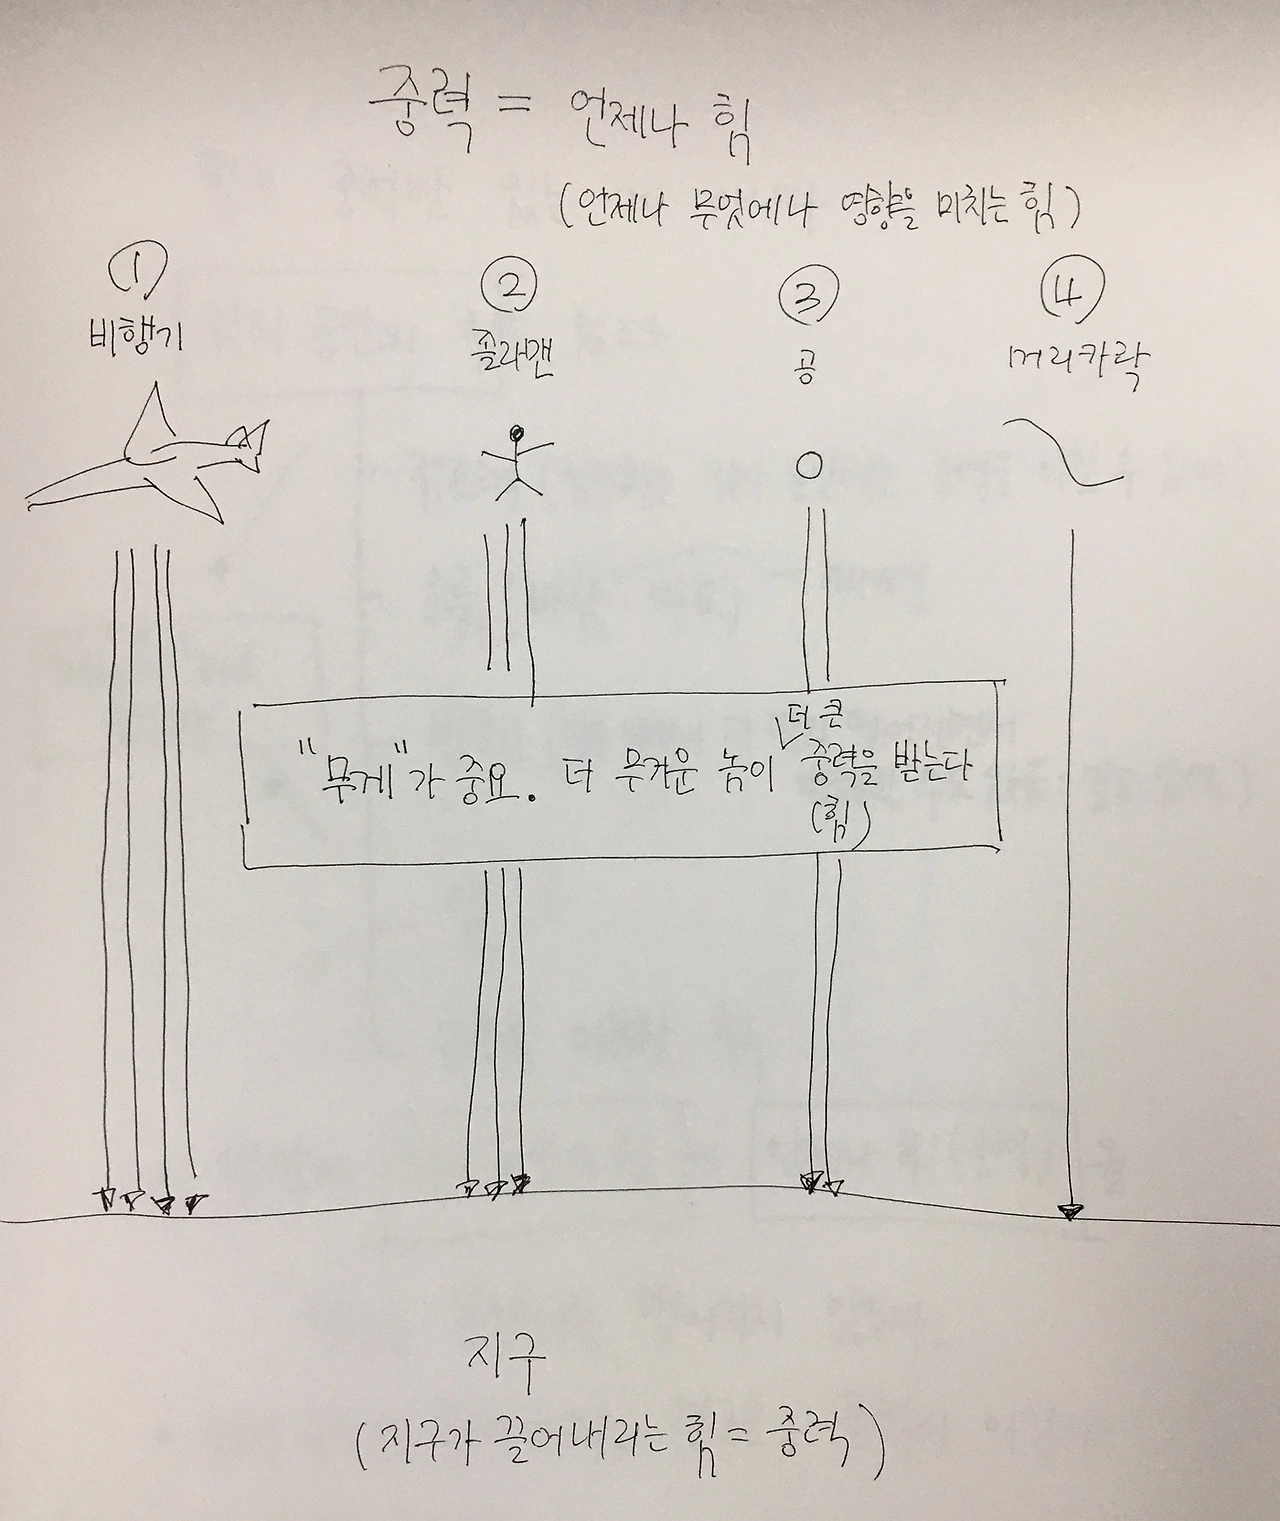 중력 = 언제나 힘
(언제나 무엇에나 영향을 미치는 힘)
① ② ③ ④
비행기 졸라맨 공 머리카락
더 큰
"무게"가 중요. 더 무거운 놈이 중력을 받는다
(힘)
지구
(지구가 끌어내리는 힘 = 중력)